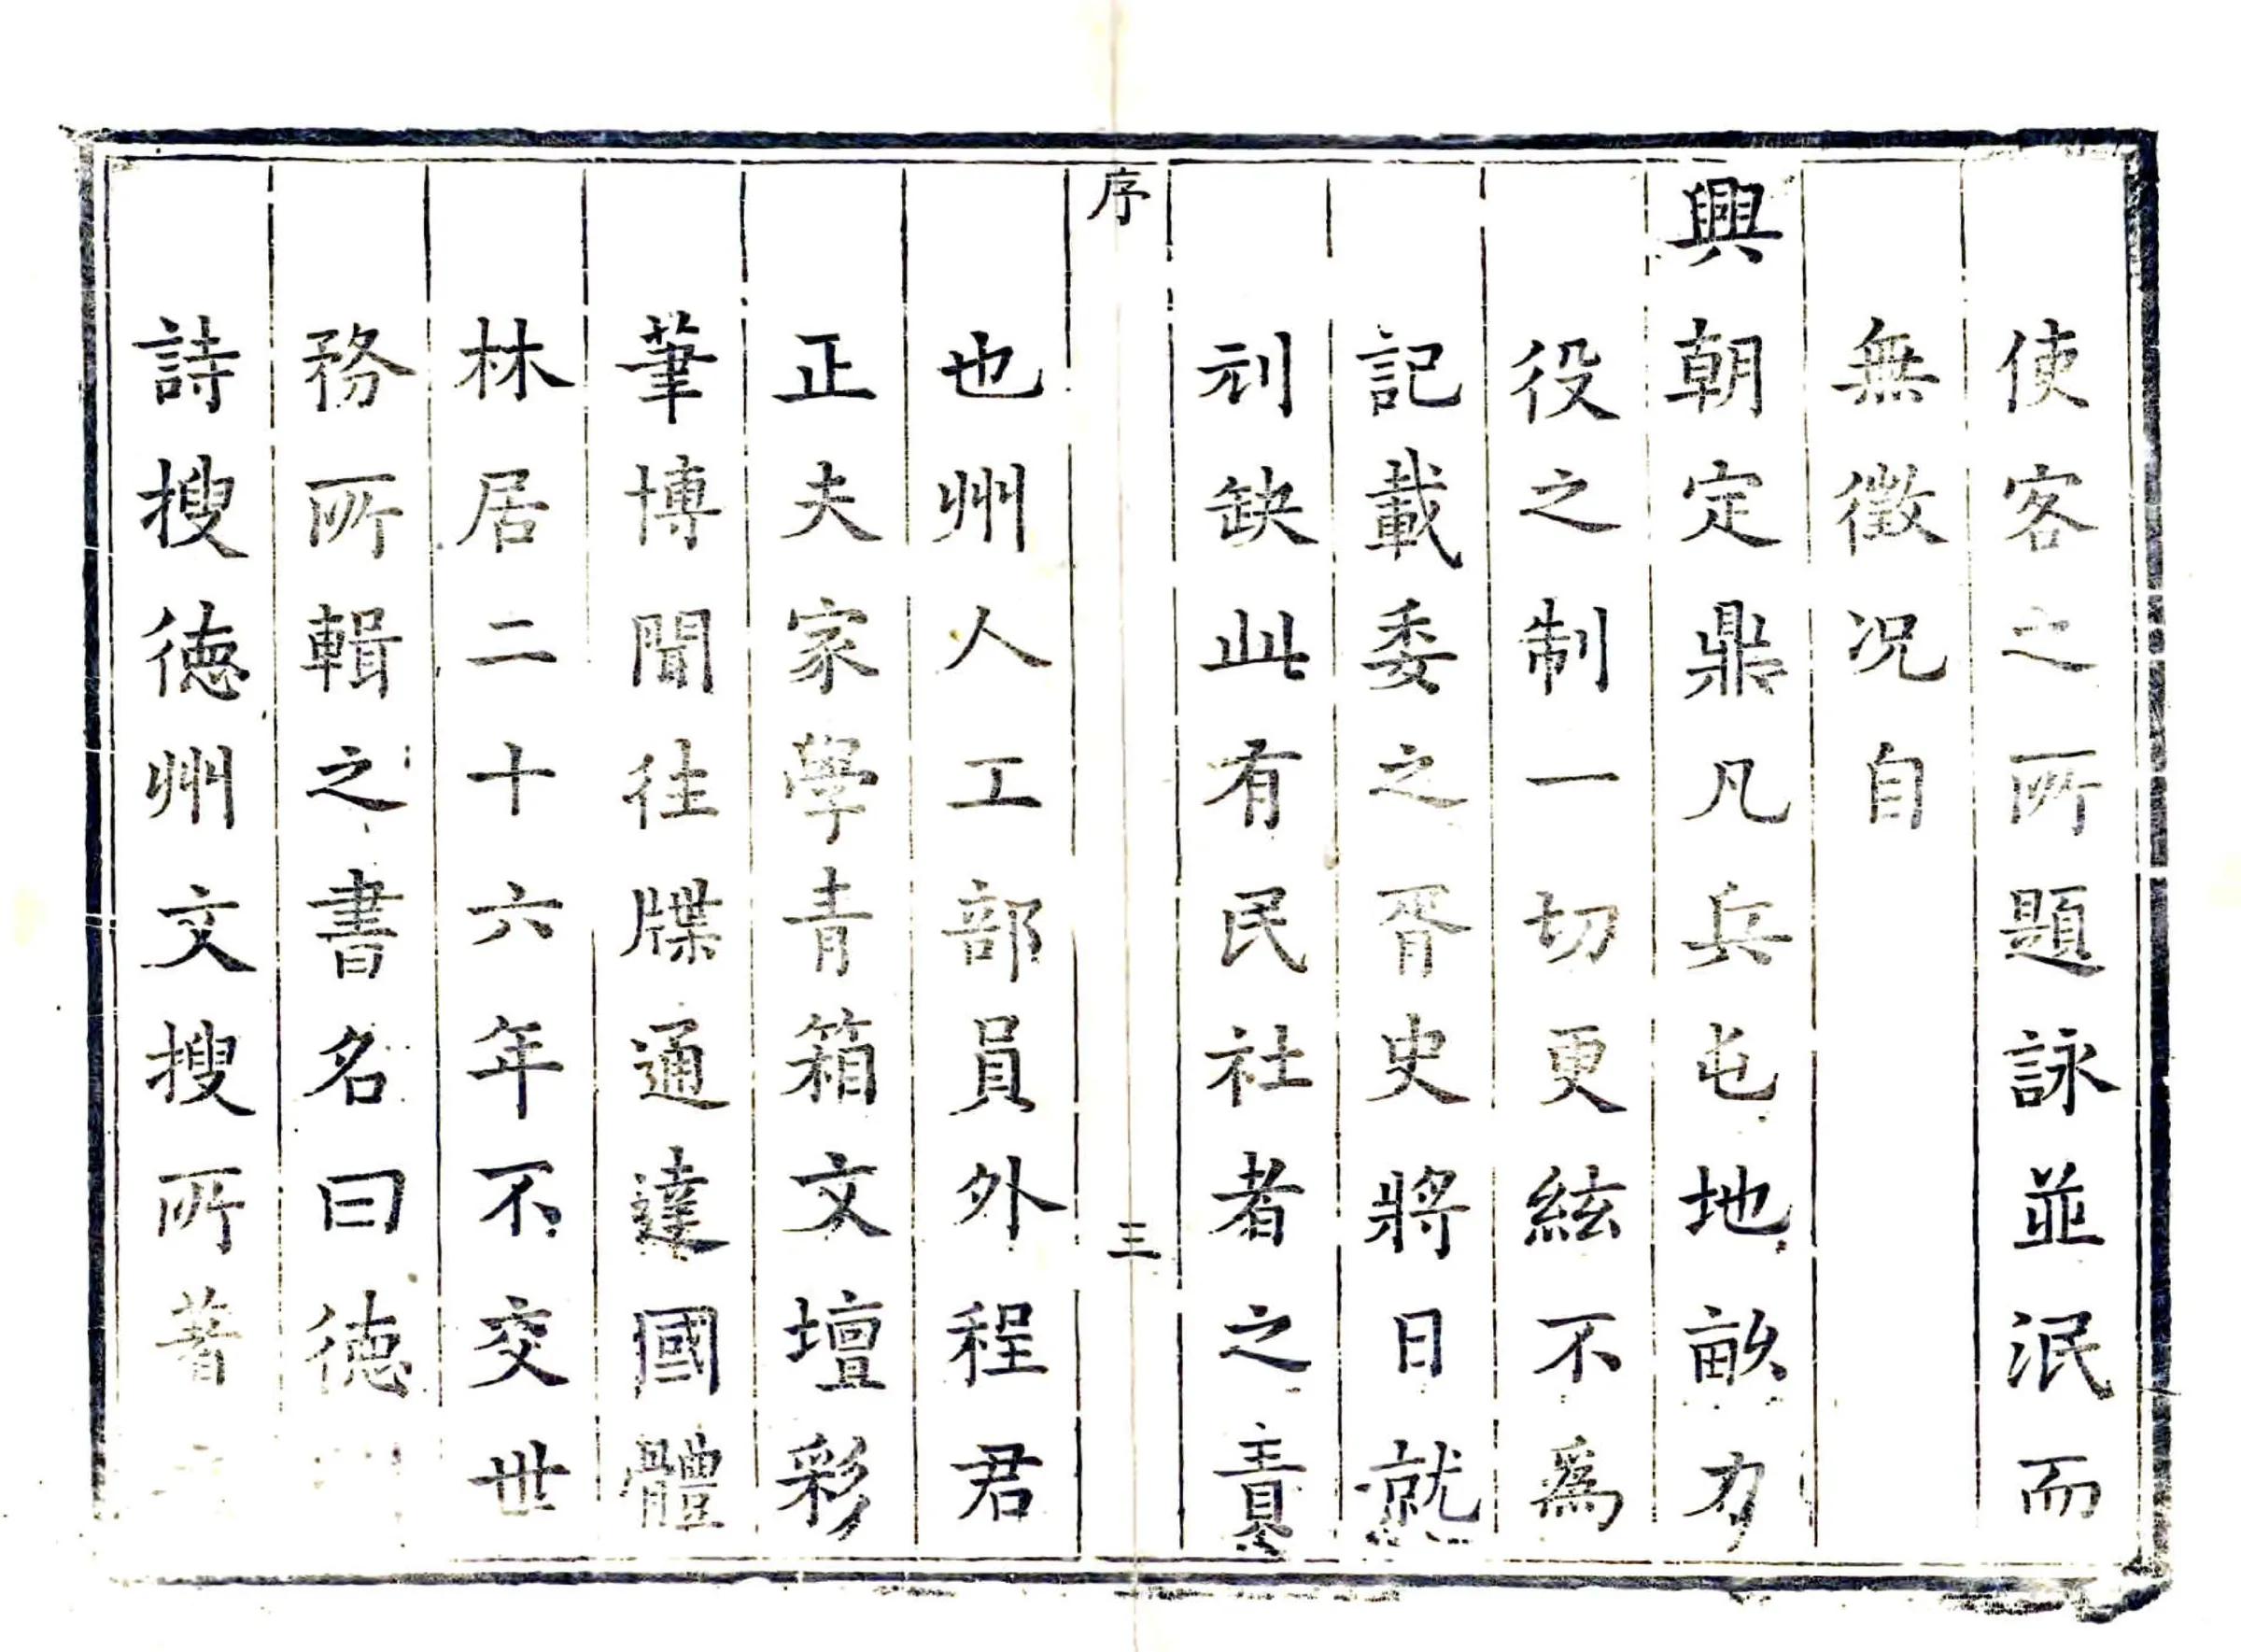 使客之所題詠並泯而
無徵况自
興朝定鼎凡兵屯地畝力
役之制一切更絃不爲
記載委之胥史將日就
刓缺此有民社者之責
序
三
也州人工部員外程君
正夫家學青箱文壇彩
筆博聞徃牒通達國體
林居二十六年不交世
務所輯之書名曰德
詩搜德州文搜所著